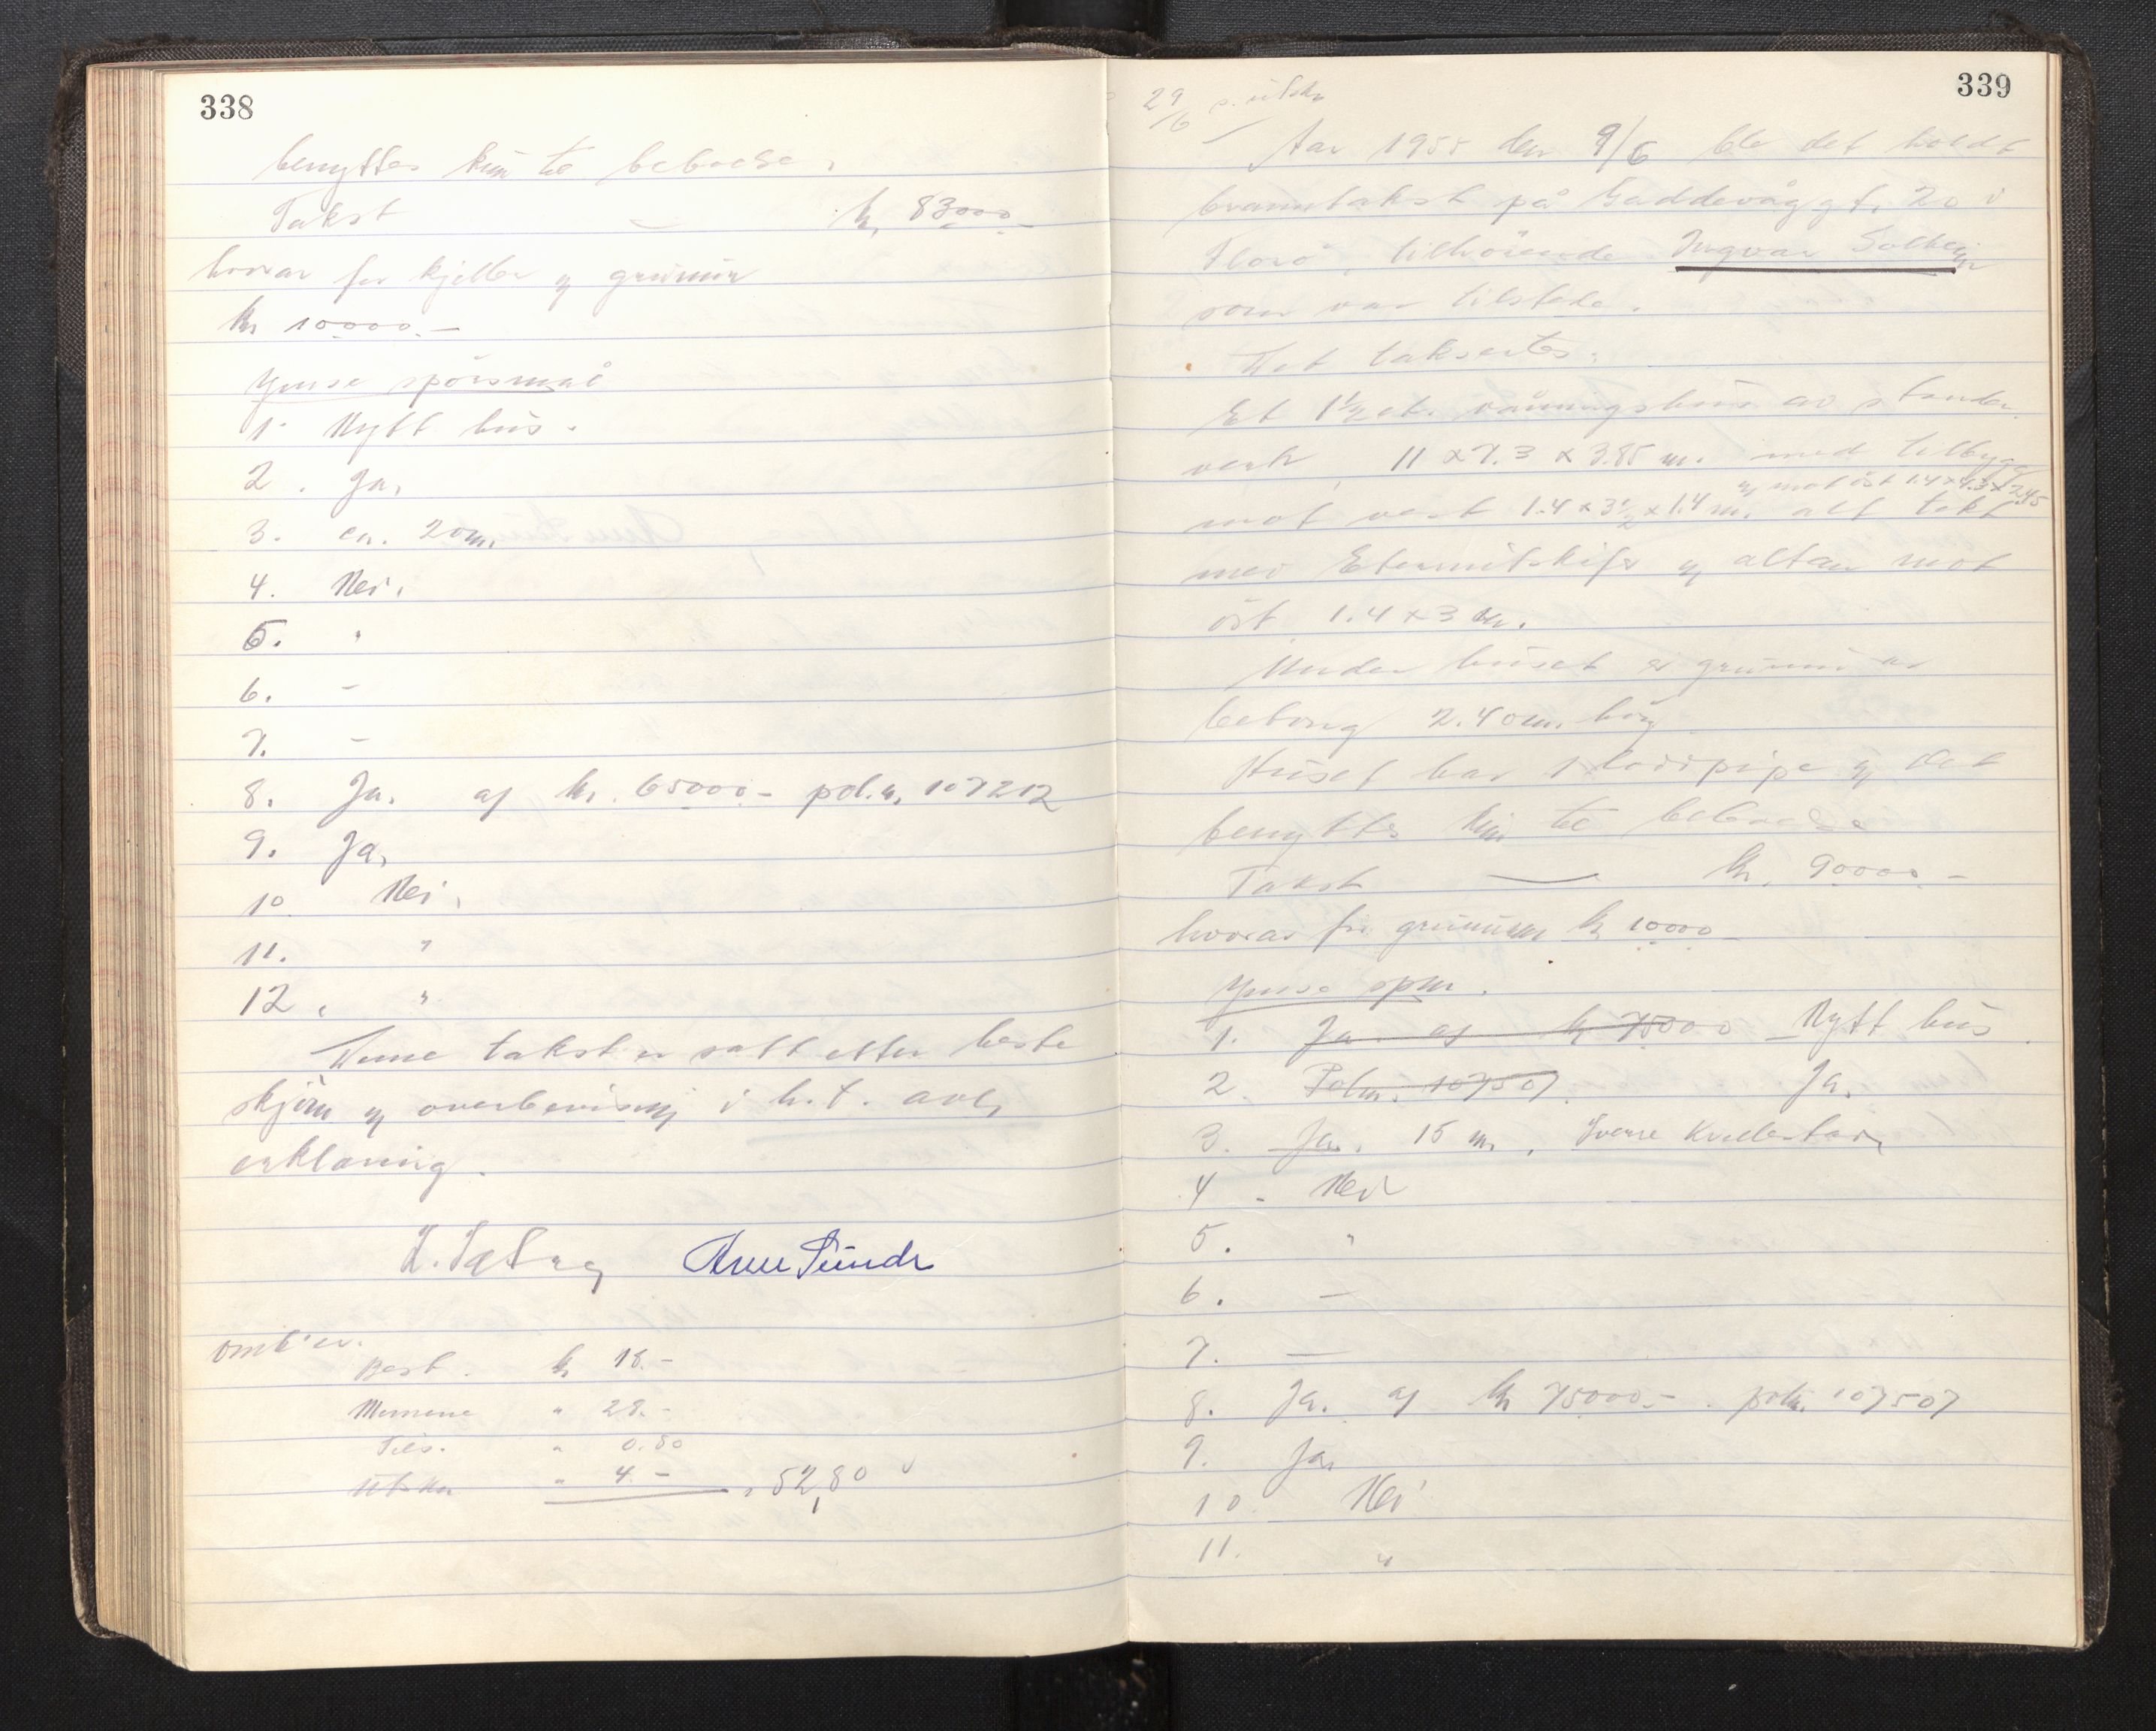 338
benyttes kun til beboelse.
Takst — kr. 83000.-
hvorav for kjeller og grunnmur
kr 10000.-
Ymse spörsmål
1. Nytt hus.
2. Ja.
3. ca. 20 m.
4. Nei.
5. "
6. -
7. -
8. Ja. af kr. 65000.- pol.n. 107212
9. Ja.
10. Nei.
11. "
12. "
Denne takst er satt etter beste
skjön og overbevisning i h.t. avlg
erklæring.
Arne Sunde
omk'er.
Best. kr 18.-
Mennene " 28.-
Tils. " 0.80
Utskr " 4.- " 52,80
339
29/6 s. utskr
Aar 1955 den 9/6 ble det holdt
branntakst på Gaddevåggt. 20 i
Florö, tilhörende Ingvar Solheim
som var tilstede.
Det taksertes:
Et 1½ et. våningshus av stender-
verk, 11 x 7.3 x 3.85 m. med tilbygg
og mot öst 1.4 x 4.3 x 2.45
mot vest 1.4 x 3½ x 1.4 m. alt tekt
med Eternitskifer og altan mot
öst 1.4 x 3 m.
Under huset er grunnmur av
betong 2.40 m. höy
Huset har 1 pipe og det
benyttes kun til beboelse
Takst — kr. 90000.-
hvorav for grunnmur kr 10000.-
Ymse spm.
1. Ja. af kr 75000 - Nytt hus.
2. Polnr. 107507. Ja.
3. Ja. 15 m. Sverre Kvellestad
4. Nei
5. "
6. -
7. —
8. Ja. af kr 75000.-. polnr. 107507
9. Ja.
10. Nei
11. "